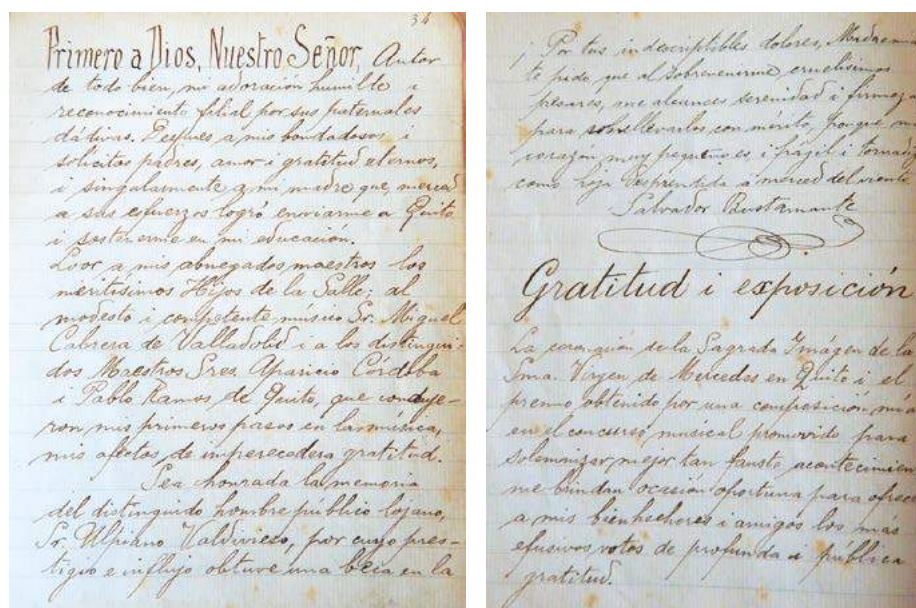 34
Primero a Dios, Nuestro Señor, Autor
de todo bien, mi adoración humilde i
reconocimiento filial por sus paternales
dádivas. Despues a mis bondadosos i
solícitos padres, amor i gratitud eternos,
i singularmente a mi madre que, merced
a sus esfuerzos logró enviarme a Quito
i sostenerme en mi educación.
Loor a mis abnegados maestros los
meritísimos Hijos de la Salle; al
modesto i competente músico Sr. Miguel
Cabrera de Valladolid i a los distingui-
dos Maestros Sres. Aparicio Córdoba
i Pablo Ramos de Quito, que conduje-
ron mis primeros pasos en la música,
mis afectos de imperecedera gratitud.
Sea honrada la memoria
del distinguido hombre público lojano,
Sr. Ulpiano Valdivieso, por cuyo pres-
tigio e influjo obtuve una beca en la
¡Por tus indescriptibles dolores, Madre
te pido que al sobrevenirme cruelísimos
pesares, me alcances serenidad i firmeza
para sobrellevarlos con mérito, porque mi
corazón muy pequeño es, i frágil i
como hoja desprendida á merced del viento
Salvador Bustamante
Gratitud i exposición
La coronación de la Sagrada Imágen de la
Sma. Virgen de Mercedes en Quito i el
premio obtenido por una composición mía
en el concurso musical promovido para
solemnizar mejor tan fausto acontecimien
me brindan ocasión oportuna para ofrec
a mis bienhechores i amigos los más
efusivos votos de profunda i pública
gratitud.